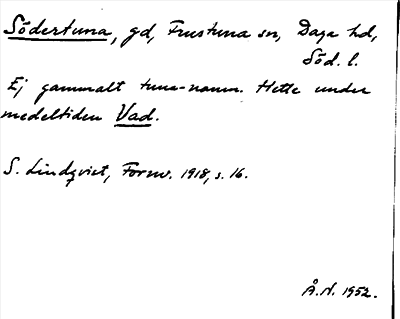 Södertuna, gd, Frustuna sn, Daga hd,
Söd. l.
Ej gammalt tuna-namn. Hette under
medeltiden Vad.
S. Lindqvist, Fornv. 1918, s. 16.
Å.N. 1952.